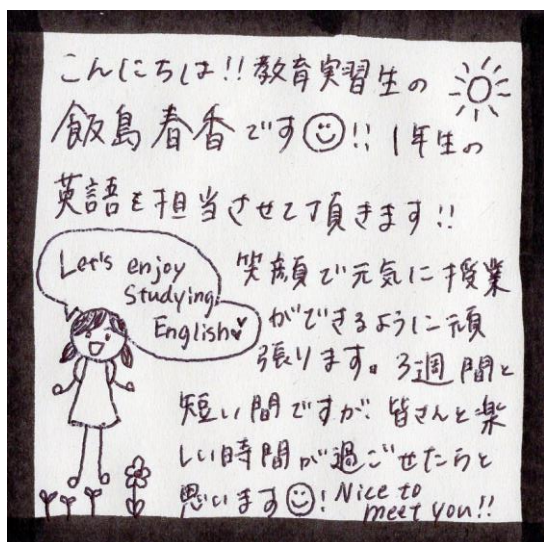 こんにちは!!教育実習生の
飯島春香です!! 1年生の
英語を担当させて頂きます!!
Let's enjoy
Studying
English
笑顔で元気に授業
ができるように頑
張ります。3週間と
短い間ですが、皆さんと楽
しい時間が過ごせたらと
思います! Nice to
meet you!!